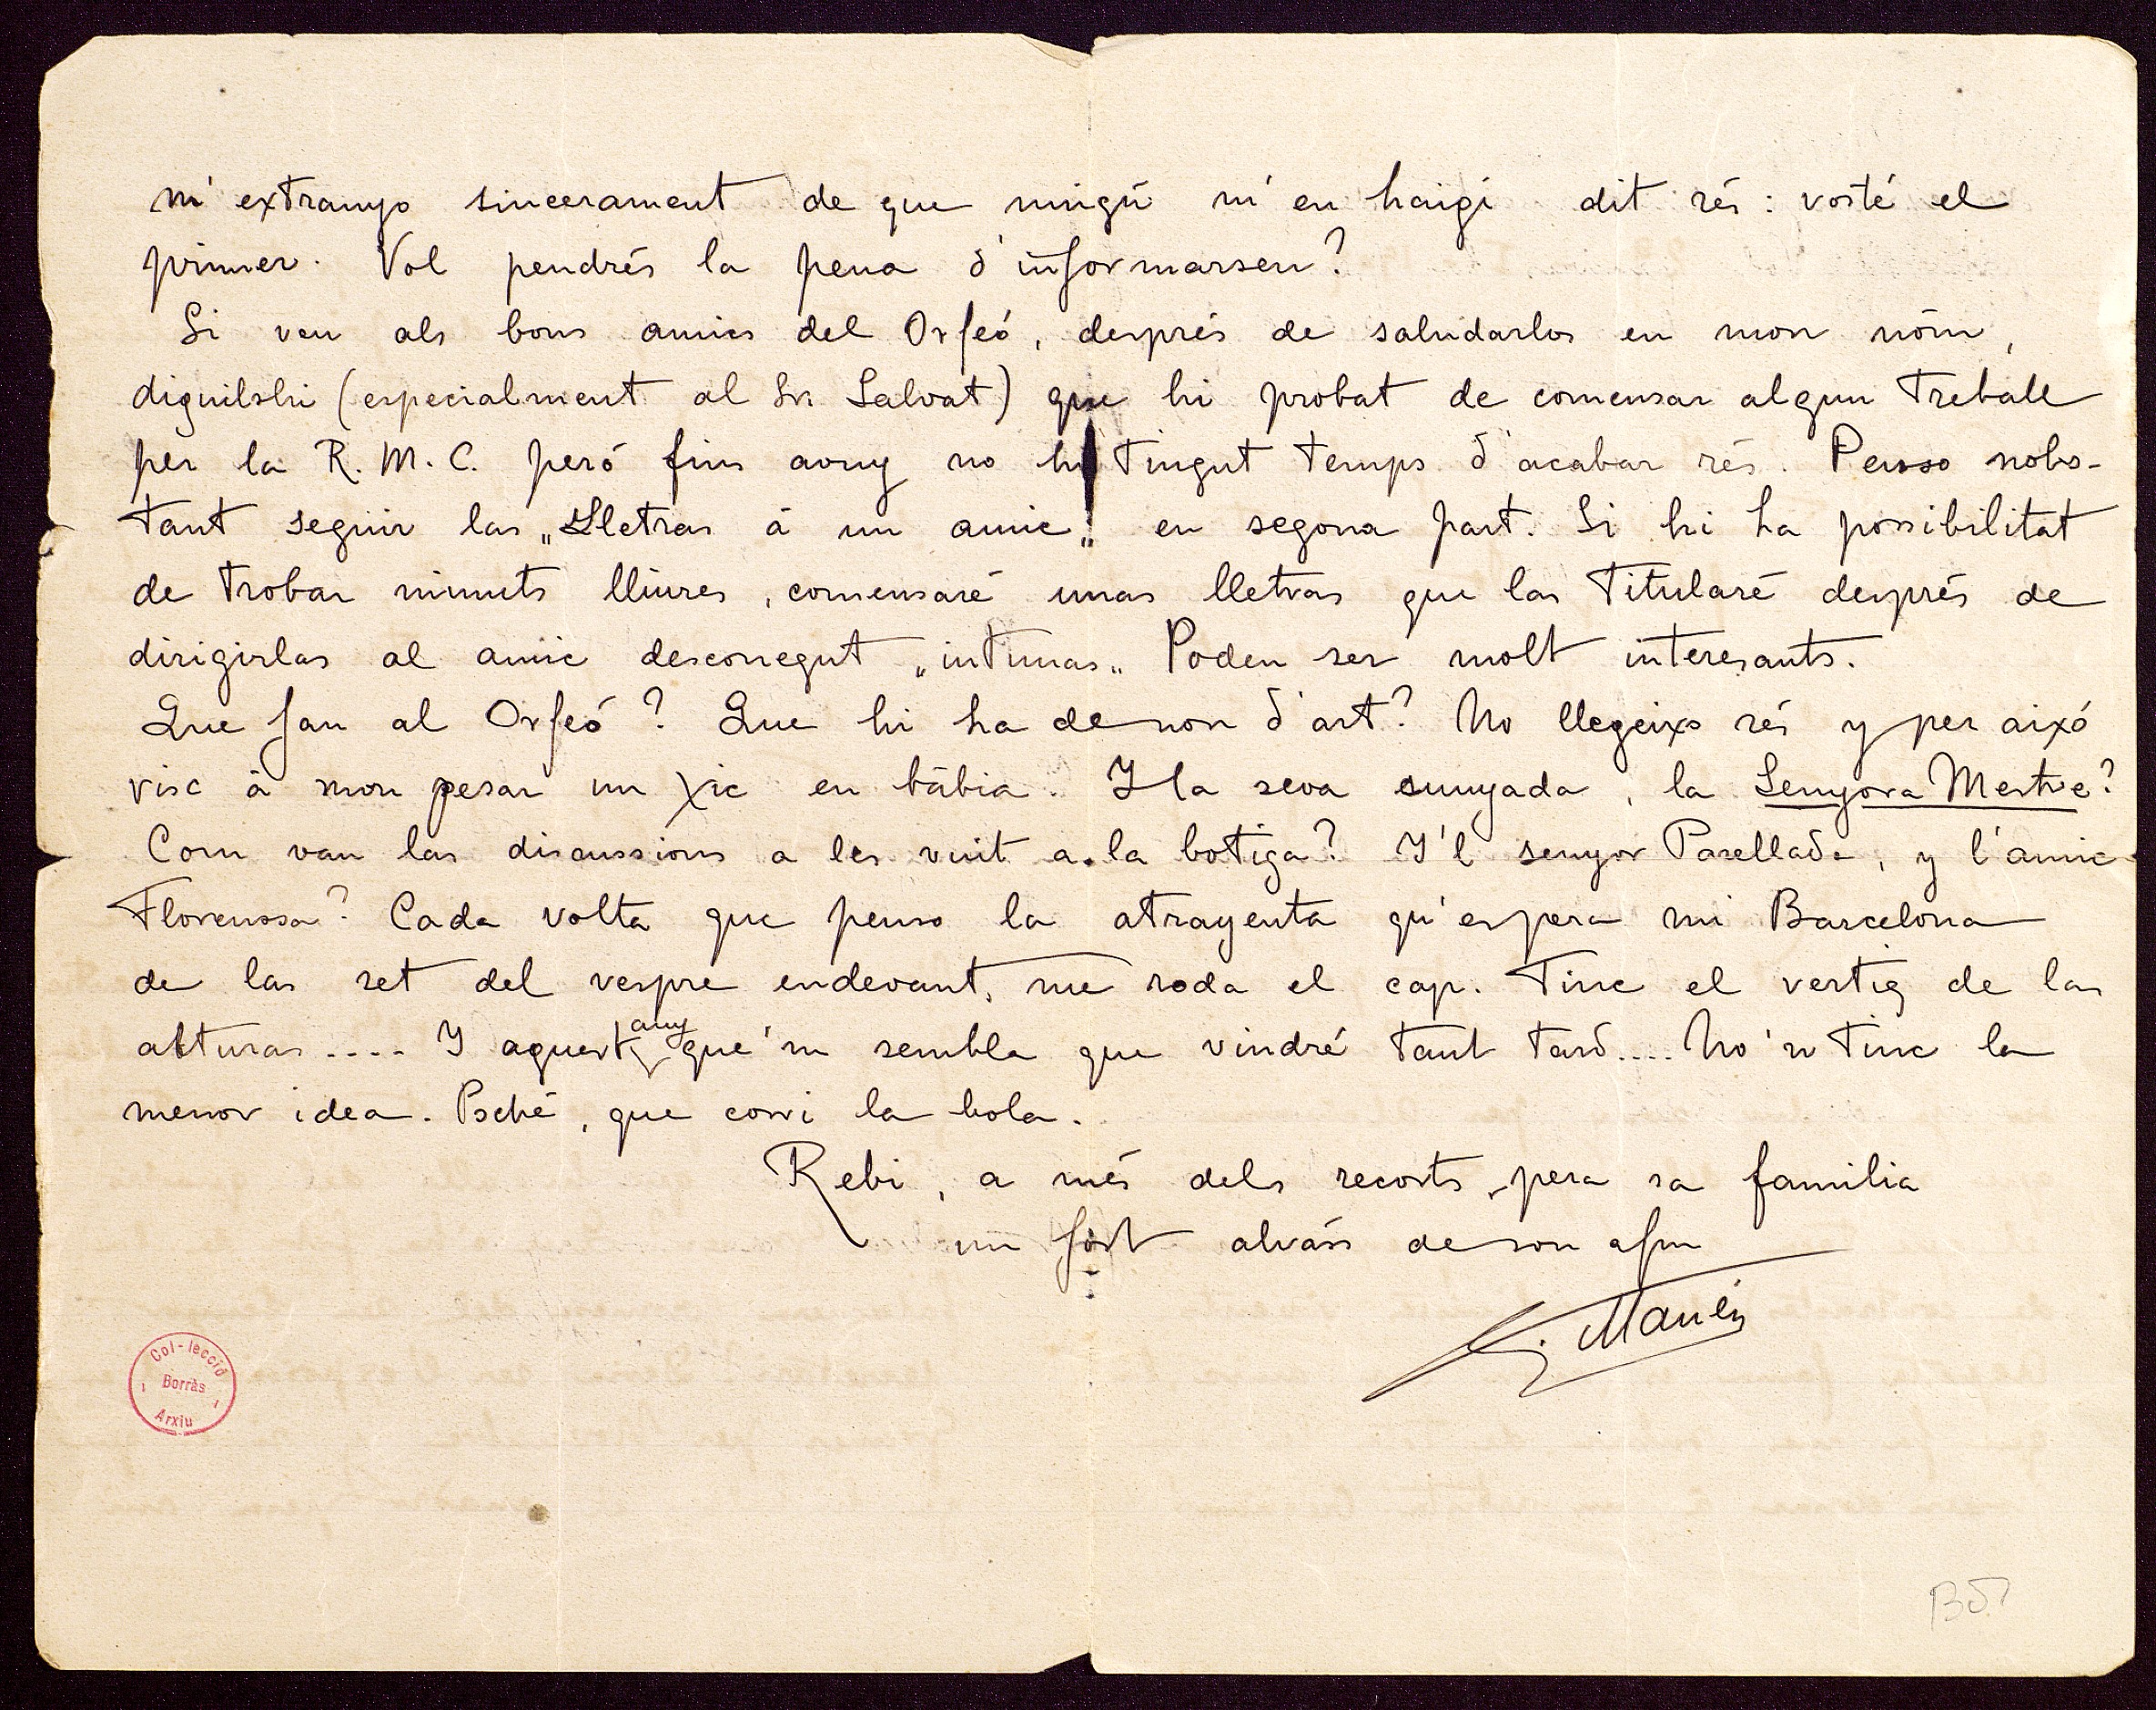 m'extranyo sincerament de que ningú m'en haigi dit rés: vosté el
primer. Vol pendrés la pena d'informarsen?
Si veu als bons amics del Orfeó, després de saludarlos en mon nóm,
diguilshi (especialment al Sr. Salvat) que hi probat de comensar algun treball
per la R. M. C. peró fins avuy no hi tingut temps d'acabar rés. Penso nobs-
tant seguir las „Lletras á un amic„ en segona part. Si hi ha possibilitat
de trobar minuts lliures, comensaré unas lletras que las titularé després de
dirigirlas al amic desconegut „intimas„ Poden ser molt interesants.
Que fan al Orfeó? Que hi ha de nou d'art? No llegeixo rés y per aixó
visc á mon pesar un xic en bábia. Y la seva cunyada, la Senyora Mestre?
Com van las discussions a les vuit a la botiga? Y'l senyor Parellada, y l'amic
Florensa? Cada volta que penso la atrayenta qu'espera mi Barcelona
de las set del vespre endevant, me roda el cap. Tinc el vertig de las
alturas.... Y aquest any que'm sembla que vindré tant tard.... No'n tinc la
menor idea. Psché, que corri la bola.
Rebi, a més dels recorts pera sa familia
un fort abráss de son afm
J. Manén
Col-lecció
Borràs
Arxiu